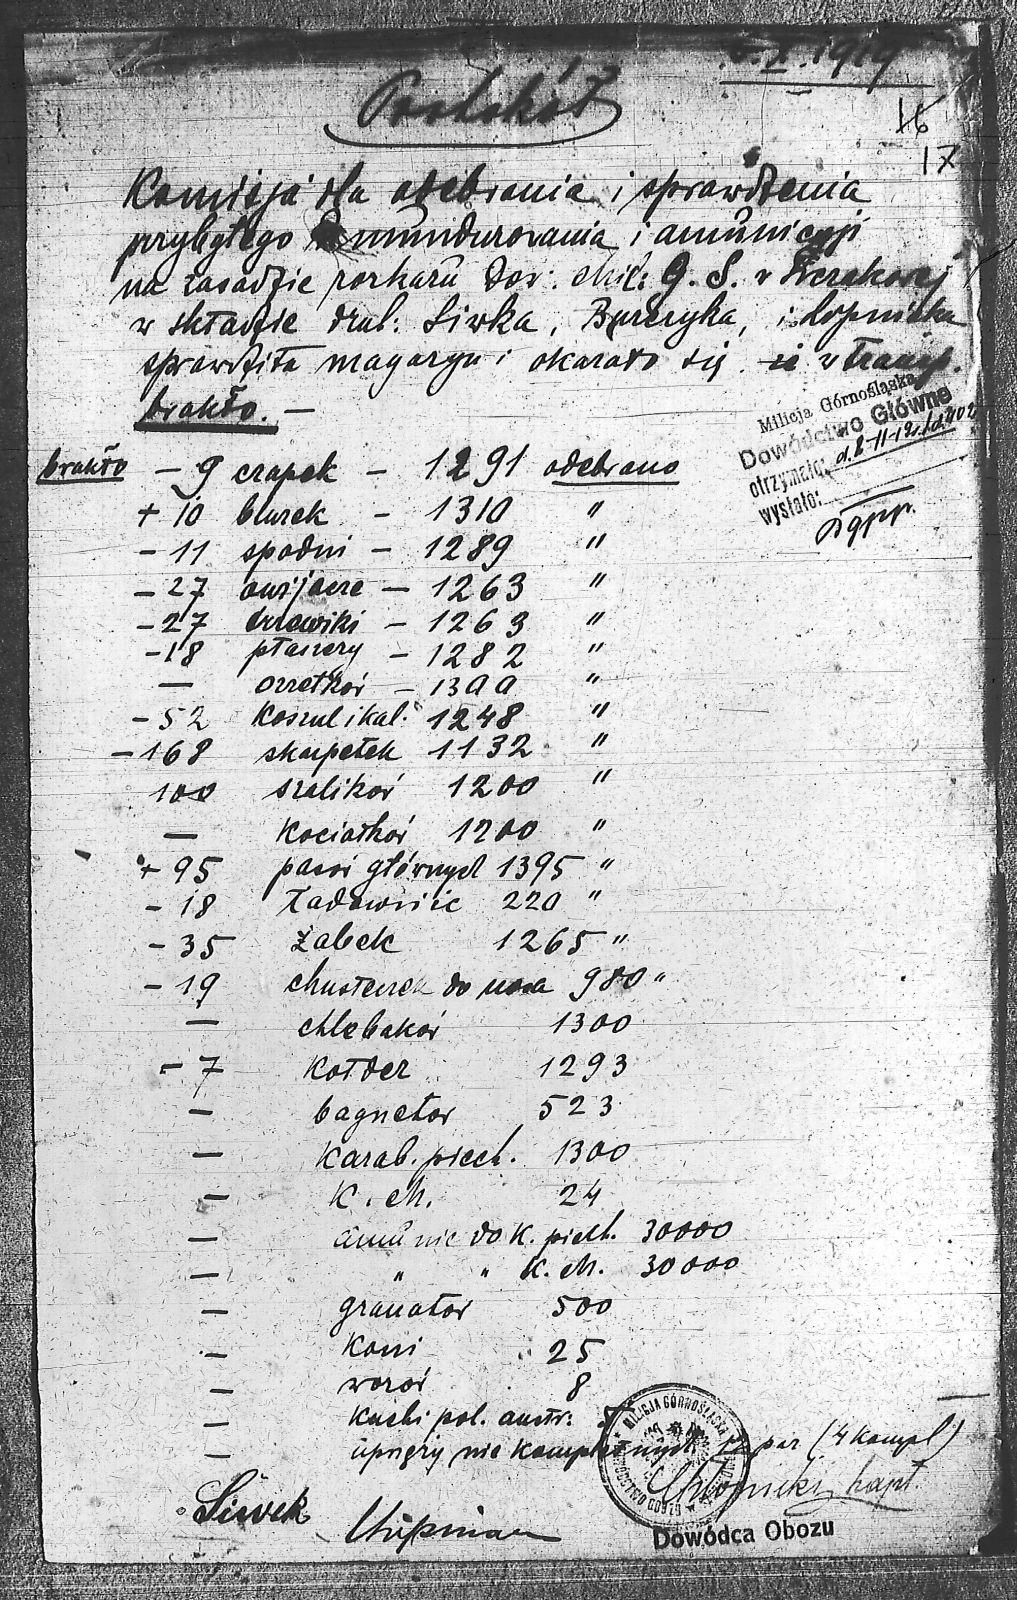 X. 1919
Protokół
16
17
Komisja dla odebrania i sprawdzenia
przybyłego umundurowania i amunicyji
na zasadzie rozkazu Dow: Mil: G. S. w
w składzie druh: Siwka, i
sprawdziła magazyn i okazało się że w transp.
brakło. —
Milicja Górnośląska
Dowództwo Główne
otrzymało:
wysłało:
brakło — 9 czapek — 1291 odebrano
+ 10 bluzek — 1310 "
— 11 spodni — 1289 "
— 27 owijacze — 1263 "
— 27 trzewiki — 1263 "
— 18 płaszczy — 1282 "
— 1300 "
— 52 Koszul i kal. 1248 "
— 168 skarpetek 1132 "
100 szalików 1200 "
— Kociołków 1200 "
+ 95 pasów głównych 1395 "
— 18 Ładownic 220 "
— 35 żabek 1265 "
— 19 chusteczek do nosa 980 "
— chlebaków 1300
— 7 Kołder 1293
— bagnetów 523
— Karab. piech. 1300
— K. M. 24
— amunic do K. piech. 30000
— " " K. M. 30000
— granatów 500
— Koni 25
— wozów 8
— Kuchi pol. austr:
— uprzęży nie kompletnych 12 par (4 kompl)
MILICJA GÓRNOŚLĄSKA
Siwek
kapt.
Dowódca Obozu